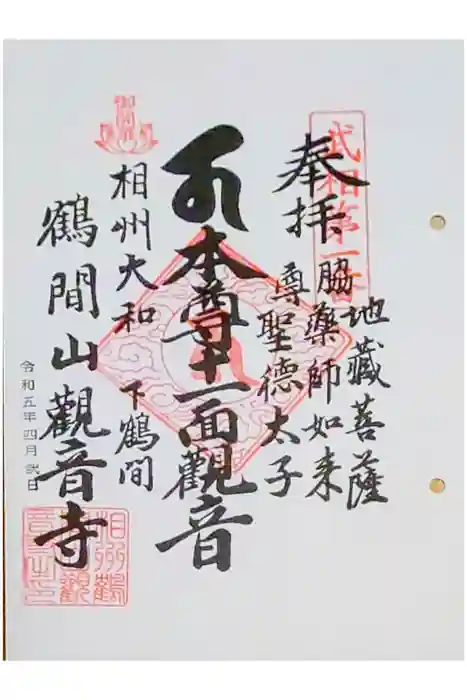 武相第一番
奉拝
地藏菩薩
脇藥師如来
尊聖德太子
本尊十一面觀音
相州大和
下鶴間
鶴間山觀音寺
令和五年四月弐日